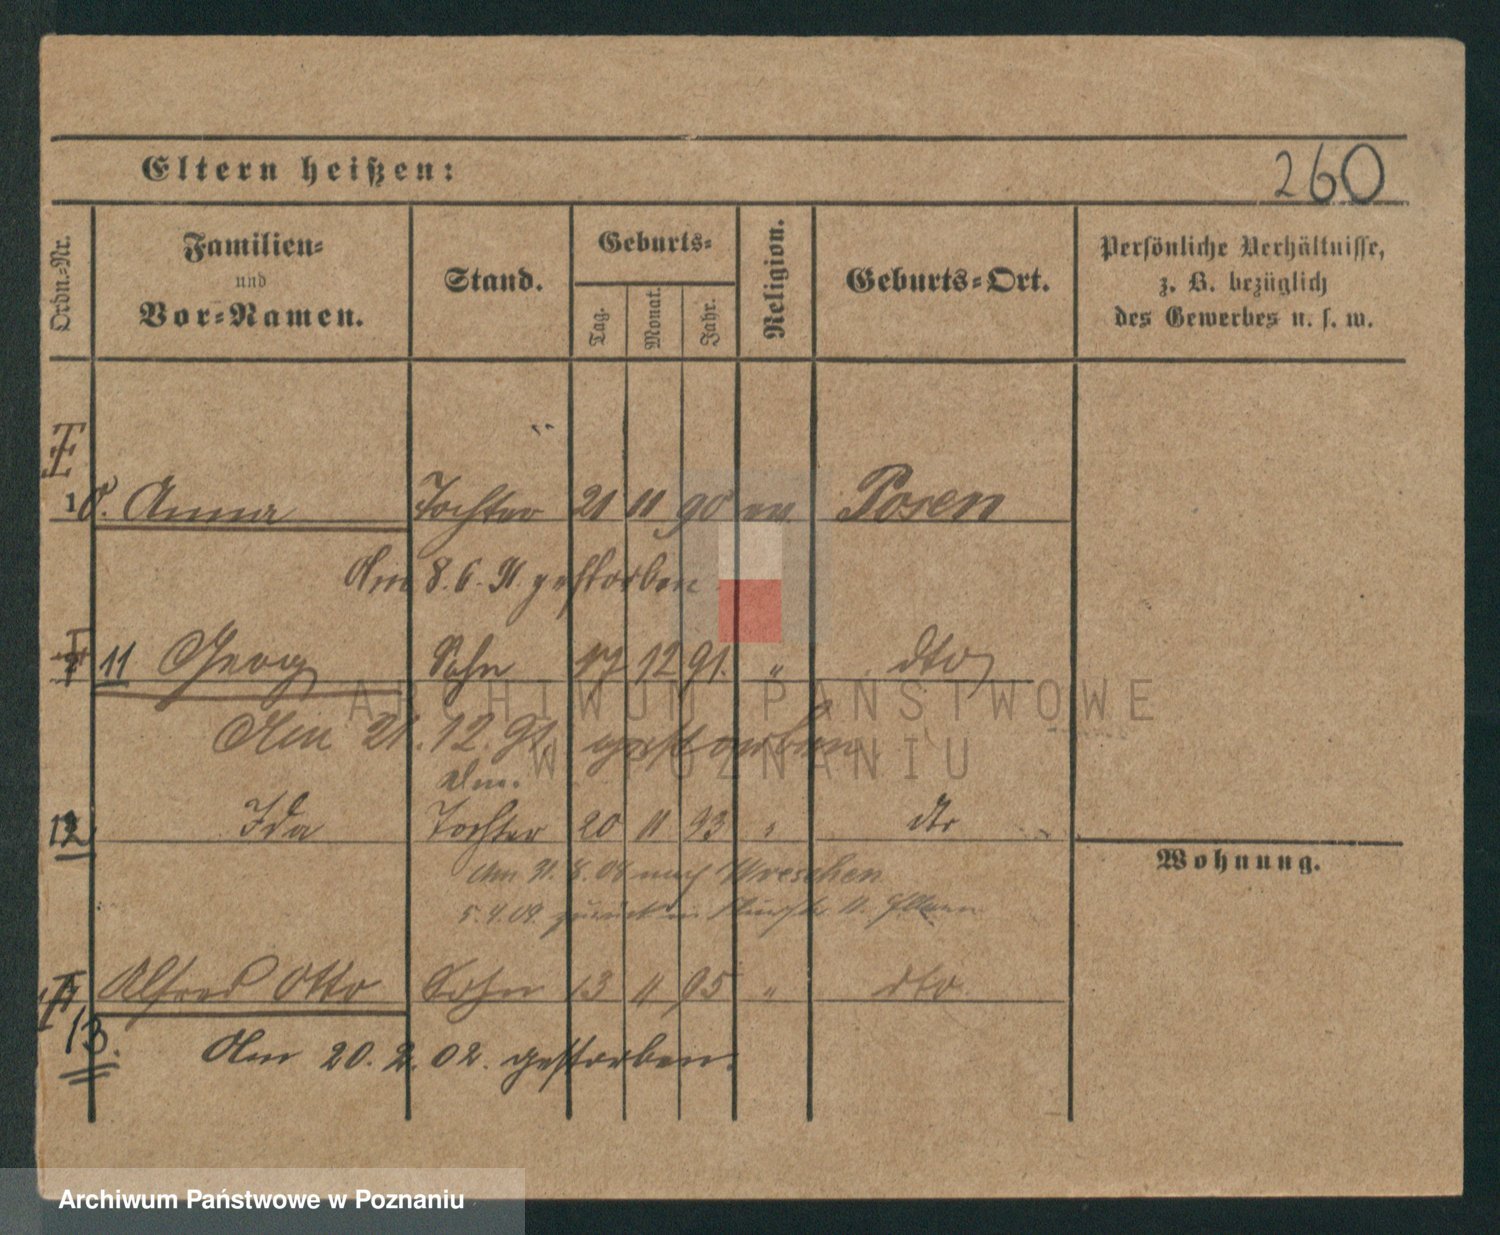 Eltern heißen:
260
Ordn.-Nr.
Familien-
und
Vor-Namen.
Stand.
Geburts-
Tag.
Monat.
Jahr.
Religion.
Geburts-Ort.
Persönliche Verhältnisse,
z. B. bezüglich
des Gewerbes u. s. w.
10. Anna Tochter 21 11 90 ev. Posen
Am 8.6.91. gestorben.
11 Georg Sohn 17 12 91. " dto
Am 21.12.91. gestorben
12 Ida Tochter 20 11 93 " dto
Wohnung.
Am 8.06 nach Wreschen
5.4.09. zurück
13. Alfred Otto Sohn 13 11 95 " dto.
Am 20.2.02. gestorben.
ARCHIWUM PAŃSTWOWE
W POZNANIU
Archiwum Państwowe w Poznaniu